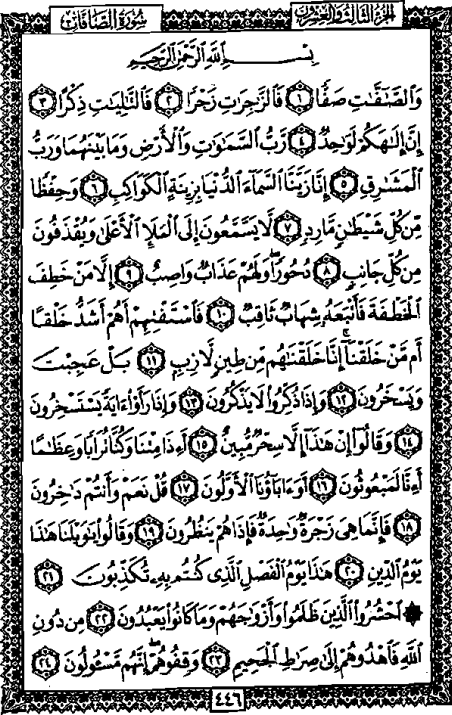 الجزء الثالث والعشرون سورة الصافات
بِسْمِ اللَّهِ الرَّحْمَنِ الرَّحِيمِ
وَالصَّٰفَّٰتِ صَفًّا ١ فَالزَّٰجِرَٰتِ زَجْرًا ٢ فَالتَّٰلِيَٰتِ ذِكْرًا ٣
إِنَّ إِلَٰهَكُمْ لَوَٰحِدٌ ٤ رَّبُّ السَّمَٰوَٰتِ وَالْأَرْضِ وَمَا بَيْنَهُمَا وَرَبُّ
الْمَشَٰرِقِ ٥ إِنَّا زَيَّنَّا السَّمَآءَ الدُّنْيَا بِزِينَةٍ الْكَوَاكِبِ ٦ وَحِفْظًا
مِّن كُلِّ شَيْطَٰنٍ مَّارِدٍ ٧ لَّا يَسَّمَّعُونَ إِلَى الْمَلَإِ الْأَعْلَىٰ وَيُقْذَفُونَ
مِن كُلِّ جَانِبٍ ٨ دُحُورًا وَلَهُمْ عَذَابٌ وَاصِبٌ ٩ إِلَّا مَنْ خَطِفَ
الْخَطْفَةَ فَأَتْبَعَهُ شِهَابٌ ثَاقِبٌ ١٠ فَاسْتَفْتِهِمْ أَهُمْ أَشَدُّ خَلْقًا
أَم مَّنْ خَلَقْنَا إِنَّا خَلَقْنَٰهُم مِّن طِينٍ لَّازِبٍ ١١ بَلْ عَجِبْتَ
وَيَسْخَرُونَ ١٢ وَإِذَا ذُكِّرُوا لَا يَذْكُرُونَ ١٣ وَإِذَا رَأَوْا ءَايَةً يَسْتَسْخِرُونَ
١٤ وَقَالُوا إِنْ هَٰذَا إِلَّا سِحْرٌ مُّبِينٌ ١٥ أَءِذَا مِتْنَا وَكُنَّا تُرَابًا وَعِظَٰمًا
أَءِنَّا لَمَبْعُوثُونَ ١٦ أَوَءَابَآؤُنَا الْأَوَّلُونَ ١٧ قُلْ نَعَمْ وَأَنتُمْ دَٰخِرُونَ
١٨ فَإِنَّمَا هِيَ زَجْرَةٌ وَٰحِدَةٌ فَإِذَا هُمْ يَنظُرُونَ ١٩ وَقَالُوا يَٰوَيْلَنَا هَٰذَا
يَوْمُ الدِّينِ ٢٠ هَٰذَا يَوْمُ الْفَصْلِ الَّذِي كُنتُم بِهِ تُكَذِّبُونَ ٢١
۞ احْشُرُوا الَّذِينَ ظَلَمُوا وَأَزْوَٰجَهُمْ وَمَا كَانُوا يَعْبُدُونَ ٢٢ مِن دُونِ
اللَّهِ فَاهْدُوهُمْ إِلَىٰ صِرَٰطِ الْجَحِيمِ ٢٣ وَقِفُوهُمْ إِنَّهُم مَّسْـُٔولُونَ ٢٤
٤٤٦